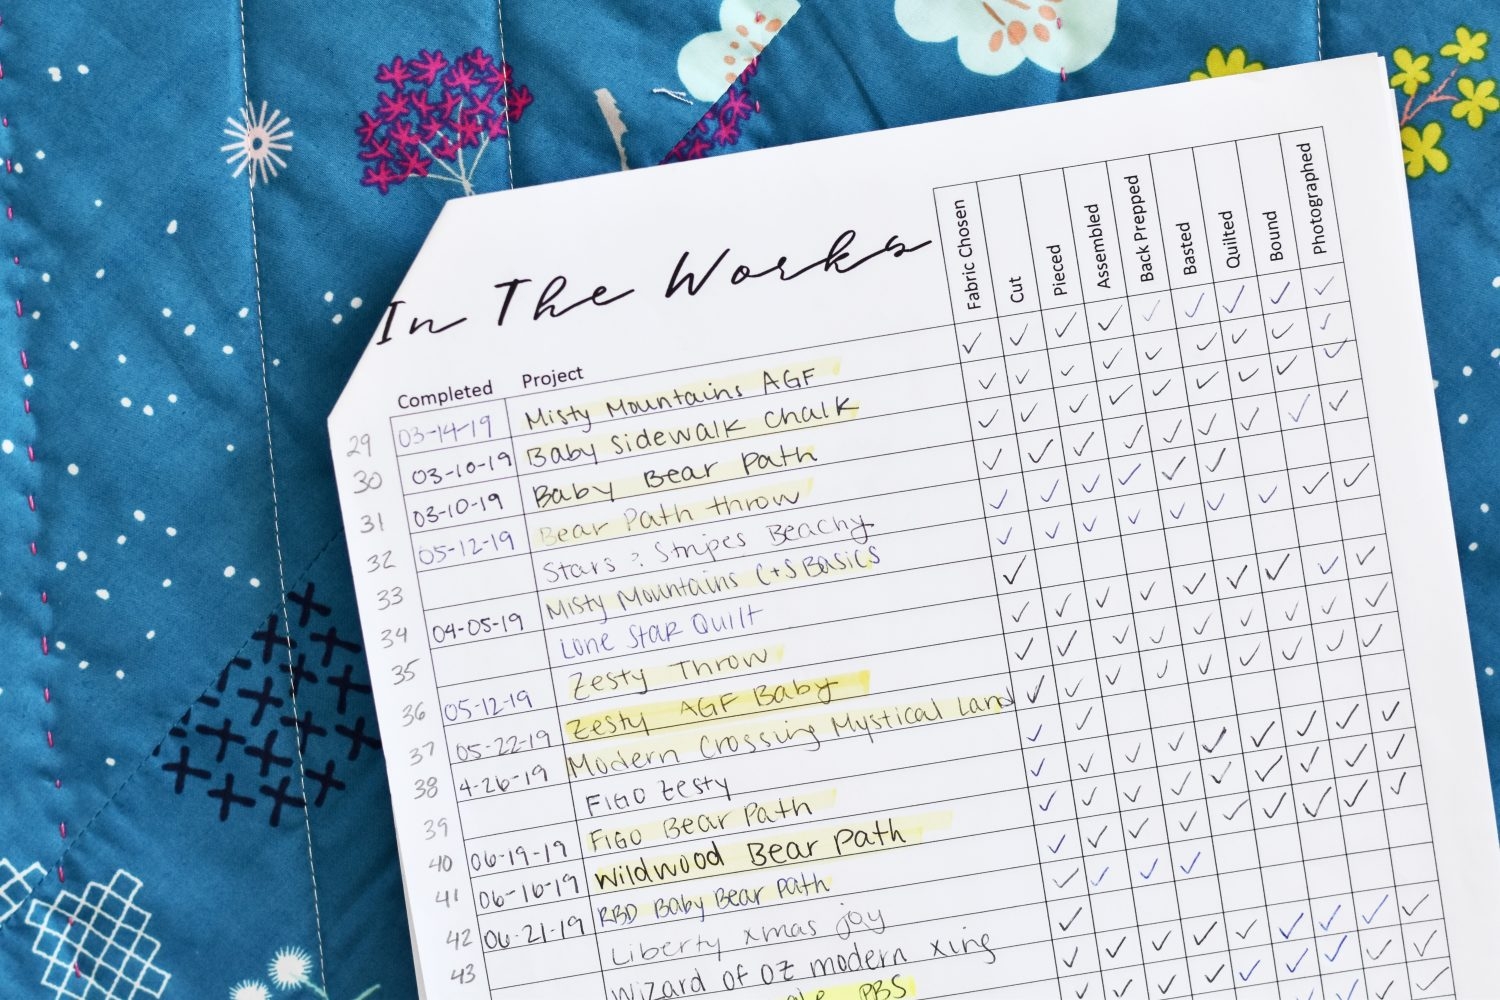 In The Works
Completed Project Fabric Chosen Cut Pieced Assembled Back Prepped Basted Quilted Bound Photographed
29 03-14-19 Misty Mountains AGF
30 03-10-19 Baby Sidewalk Chalk
31 03-10-19 Baby Bear Path
32 05-12-19 Bear Path throw
33 Stars & Stripes Beachy
34 04-05-19 Misty Mountains C+S Basics
35 Lone Star Quilt
36 05-12-19 Zesty Throw
37 05-22-19 Zesty AGF Baby
38 4-26-19 Modern Crossing Mystical Land
39 FIGO Zesty
40 06-19-19 FIGO Bear Path
41 06-16-19 Wildwood Bear Path
42 06-21-19 RBD Baby Bear Path
43 Liberty xmas joy
Wizard of OZ modern xing
PBS